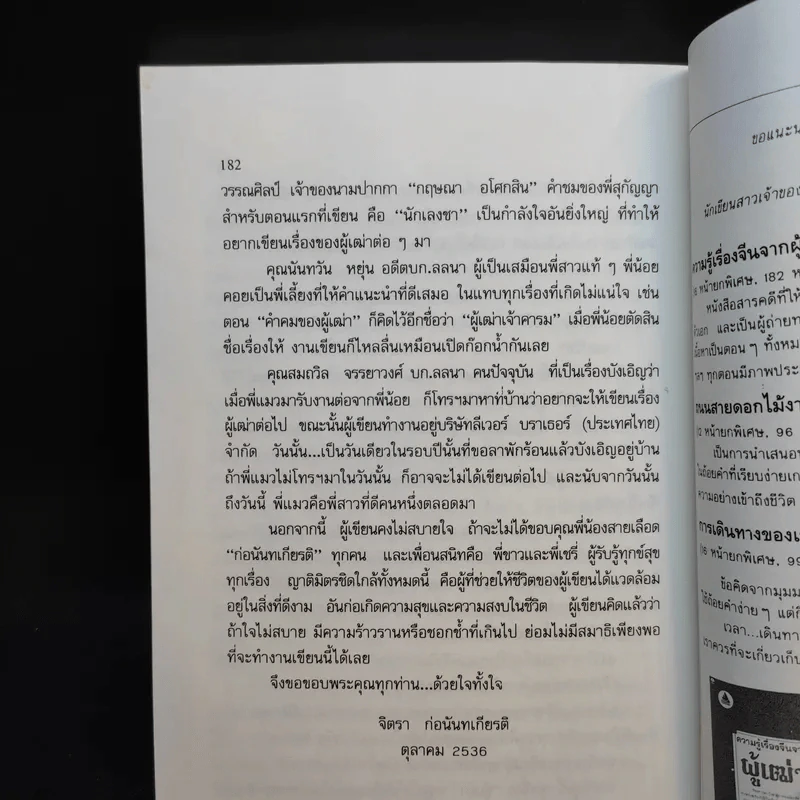 182
วรรณศิลป์ เจ้าของนามปากกา “กฤษณา อโศกสิน” คำชมของพี่สุกัญญา
สำหรับตอนแรกที่เขียน คือ “นักเลงชา” เป็นกำลังใจอันยิ่งใหญ่ ที่ทำให้
อยากเขียนเรื่องของผู้เฒ่าต่อ ๆ มา
คุณนันทวัน หยุ่น อดีตบก.ลลนา ผู้เป็นเสมือนพี่สาวแท้ ๆ พี่น้อย
คอยเป็นพี่เลี้ยงที่ให้คำแนะนำที่ดีเสมอ ในแทบทุกเรื่องที่เกิดไม่แน่ใจ เช่น
ตอน “คำคมของผู้เฒ่า” ก็คิดไว้อีกชื่อว่า “ผู้เฒ่าเจ้าคารม” เมื่อพี่น้อยตัดสิน
ชื่อเรื่องให้ งานเขียนก็ไหลลื่นเหมือนเปิดก๊อกน้ำกันเลย
คุณสมถวิล จรรยาวงศ์ บก.ลลนา คนปัจจุบัน ที่เป็นเรื่องบังเอิญว่า
เมื่อพี่แมวมารับงานต่อจากพี่น้อย ก็โทรฯมาหาที่บ้านว่าอยากจะให้เขียนเรื่อง
ผู้เฒ่าต่อไป ขณะนั้นผู้เขียนทำงานอยู่บริษัทลีเวอร์ บราเธอร์ (ประเทศไทย)
จำกัด วันนั้น...เป็นวันเดียวในรอบปีนั้นที่ขอลาพักร้อนแล้วบังเอิญอยู่บ้าน
ถ้าพี่แมวไม่โทรฯมาในวันนั้น ก็อาจจะไม่ได้เขียนต่อไป และนับจากวันนั้น
ถึงวันนี้ พี่แมวคือพี่สาวที่ดีคนหนึ่งตลอดมา
นอกจากนี้ ผู้เขียนคงไม่สบายใจ ถ้าจะไม่ได้ขอบคุณพี่น้องสายเลือด
“ก่อนันทเกียรติ” ทุกคน และเพื่อนสนิทคือ พี่ขาวและพี่เชรี่ ผู้รับรู้ทุกข์สุข
ทุกเรื่อง ญาติมิตรชิดใกล้ทั้งหมดนี้ คือผู้ที่ช่วยให้ชีวิตของผู้เขียนได้แวดล้อม
อยู่ในสิ่งที่ดีงาม อันก่อเกิดความสุขและความสงบในชีวิต ผู้เขียนคิดแล้วว่า
ถ้าใจไม่สบาย มีความร้าวรานหรือชอกช้ำที่เกินไป ย่อมไม่มีสมาธิเพียงพอ
ที่จะทำงานเขียนนี้ได้เลย
จึงขอขอบพระคุณทุกท่าน...ด้วยใจทั้งใจ
จิตรา ก่อนันทเกียรติ
ตุลาคม 2536
ขอแนะน
นักเขียนสาวเจ้าของ
ความรู้เรื่องจีนจากผู้
หน้ายกพิเศษ. 182 ห
หนังสือสารคดีที่ให้
และเป็นผู้ถ่ายท
เป็นตอน ๆ ทั้งหม
ทุกตอนมีภาพประ
ถนนสายดอกไม้งา
หน้ายกพิเศษ. 96
เป็นการนำเสนอ
ถ้อยคำที่เรียบง่าย
ความอย่างเข้าถึงชีวิต
การเดินทางของเ
หน้ายกพิเศษ. 99
ข้อคิดจากมุมม
ถ้อยคำง่าย ๆ แต่
เวลา...เดินทา
เราควรที่จะเกี่ยวเก็บ
ความรู้เรื่องจีนจา
ผู้เฒ่า